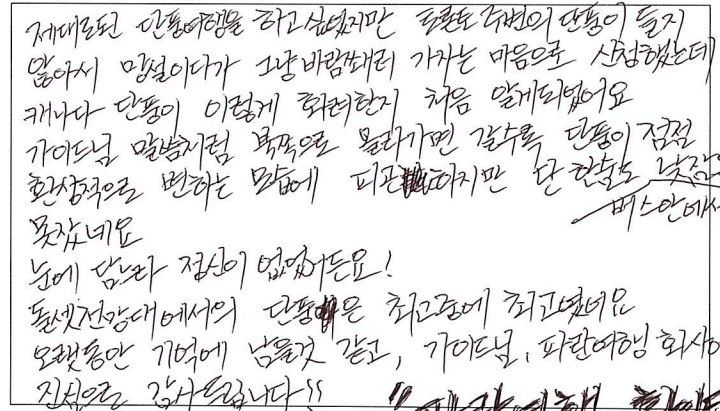 제대로된 단풍여행을 하고싶었지만 토론토 주변의 단풍이 들지
않아서 망설이다가 그냥 바람쐐러 가자는 마음으로 신청했는데
캐나다 단풍이 이렇게 화려한지 처음 알게되었어요
가이드님 말씀처럼 북쪽으로 올라가면 갈수록 단풍이 점점
환상적으로 변하는 모습에 피곤 하지만 단 한숨도 낮잠
버스안에서
못잤네요
눈에 담느라 정신이 없었거든요!
돌셋전망대에서의 단풍은 최고중에 최고였네요
오랫동안 기억에 남을것 같고, 가이드님, 파란여행 회사에
진심으로 감사드립니다!!